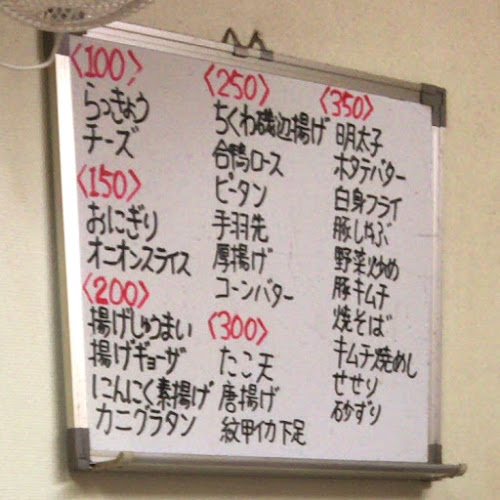 〈100〉
らっきょう
チーズ
〈150〉
おにぎり
オニオンスライス
〈200〉
揚げしゅうまい
揚げギョーザ
にんにく素揚げ
カニグラタン
〈250〉
ちくわ磯辺揚げ
合鴨ロース
ピータン
手羽先
厚揚げ
コーンバター
〈300〉
たこ天
唐揚げ
紋甲イカ下足
〈350〉
明太子
ホタテバター
白身フライ
豚しゃぶ
野菜炒め
豚キムチ
焼そば
キムチ焼めし
せせり
砂ずり